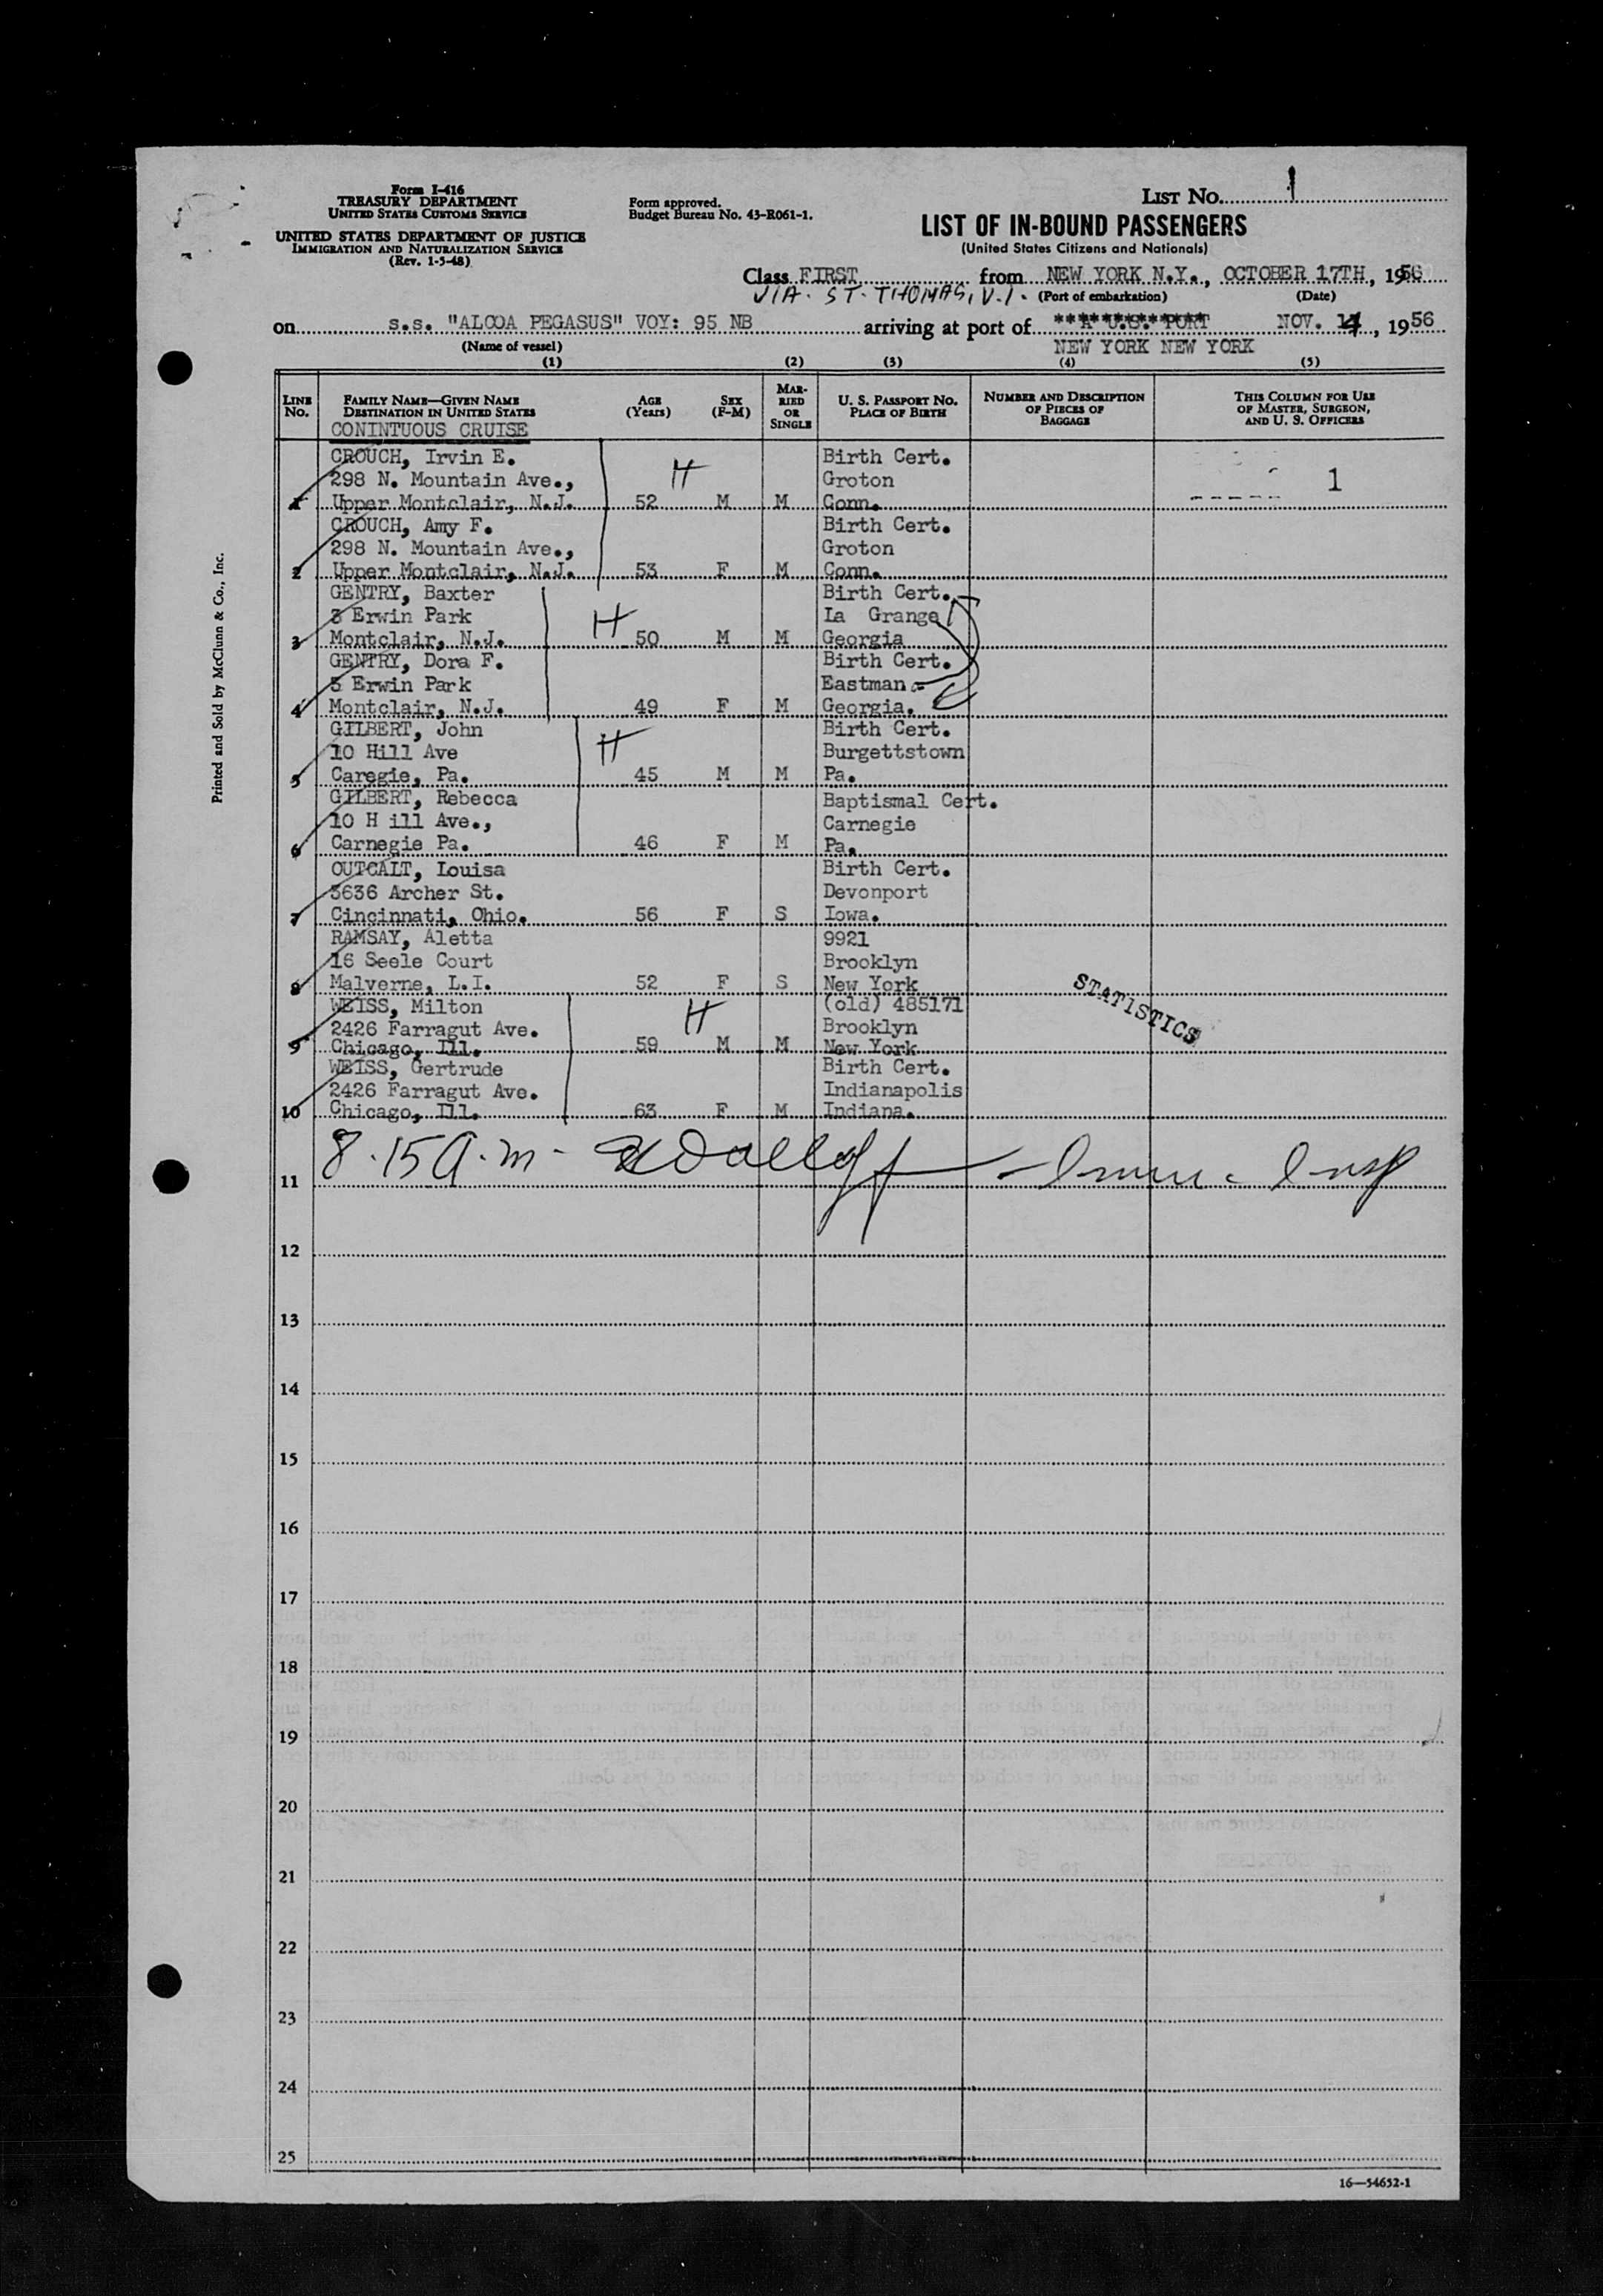 Form I-416
TREASURY DEPARTMENT
UNITED STATES CUSTOMS SERVICE
UNITED STATES DEPARTMENT OF JUSTICE
IMMIGRATION AND NATURALIZATION SERVICE
(Rev. 1-5-48)
Form approved.
Budget Bureau No. 43-R061-1.
LIST No. 1
LIST OF IN-BOUND PASSENGERS
(United States Citizens and Nationals)
Class FIRST from NEW YORK N.Y., OCTOBER 17TH, 1956
VIA. ST. THOMAS, V.I. (Port of embarkation) (Date)
on s.s. "ALCOA PEGASUS" VOY: 95 NB arriving at port of A U.S. PORT NOV. 14, 1956
(Name of vessel) NEW YORK NEW YORK
(1) (2) (3) (4) (5)
LINE No.
FAMILY NAME—GIVEN NAME
DESTINATION IN UNITED STATES
AGE (Years)
SEX (F-M)
MARRIED OR SINGLE
U. S. PASSPORT No.
PLACE OF BIRTH
NUMBER AND DESCRIPTION OF PIECES OF BAGGAGE
THIS COLUMN FOR USE OF MASTER, SURGEON, AND U. S. OFFICERS
CONINTUOUS CRUISE
CROUCH, Irvin E. Birth Cert.
298 N. Mountain Ave., H Groton 1
1 Upper Montclair, N.J. 52 M M Conn.
CROUCH, Amy F. Birth Cert.
298 N. Mountain Ave., Groton
2 Upper Montclair, N.J. 53 F M Conn.
GENTRY, Baxter Birth Cert.
3 Erwin Park H La Grange
3 Montclair, N.J. 50 M M Georgia
GENTRY, Dora F. Birth Cert.
3 Erwin Park Eastman
4 Montclair, N.J. 49 F M Georgia.
GILBERT, John H Birth Cert.
10 Hill Ave Burgettstown
5 Caregie, Pa. 45 M M Pa.
GILBERT, Rebecca Baptismal Cert.
10 H ill Ave., Carnegie
6 Carnegie Pa. 46 F M Pa.
OUTCALT, Louisa Birth Cert.
3636 Archer St. Devonport
7 Cincinnati, Ohio. 56 F S Iowa.
RAMSAY, Aletta 9921
16 Seele Court Brooklyn
8 Malverne, L.I. 52 F S New York
WEISS, Milton H (old) 485171
2426 Farragut Ave. Brooklyn
9 Chicago, Ill. 59 M M New York
STATISTICS
WEISS, Gertrude Birth Cert.
2426 Farragut Ave. Indianapolis
10 Chicago, Ill. 63 F M Indiana.
8.15 A.m. - Imm. Insp
11
12
13
14
15
16
17
18
19
20
21
22
23
24
25
16—54652-1
Printed and Sold by McClunn & Co., Inc.